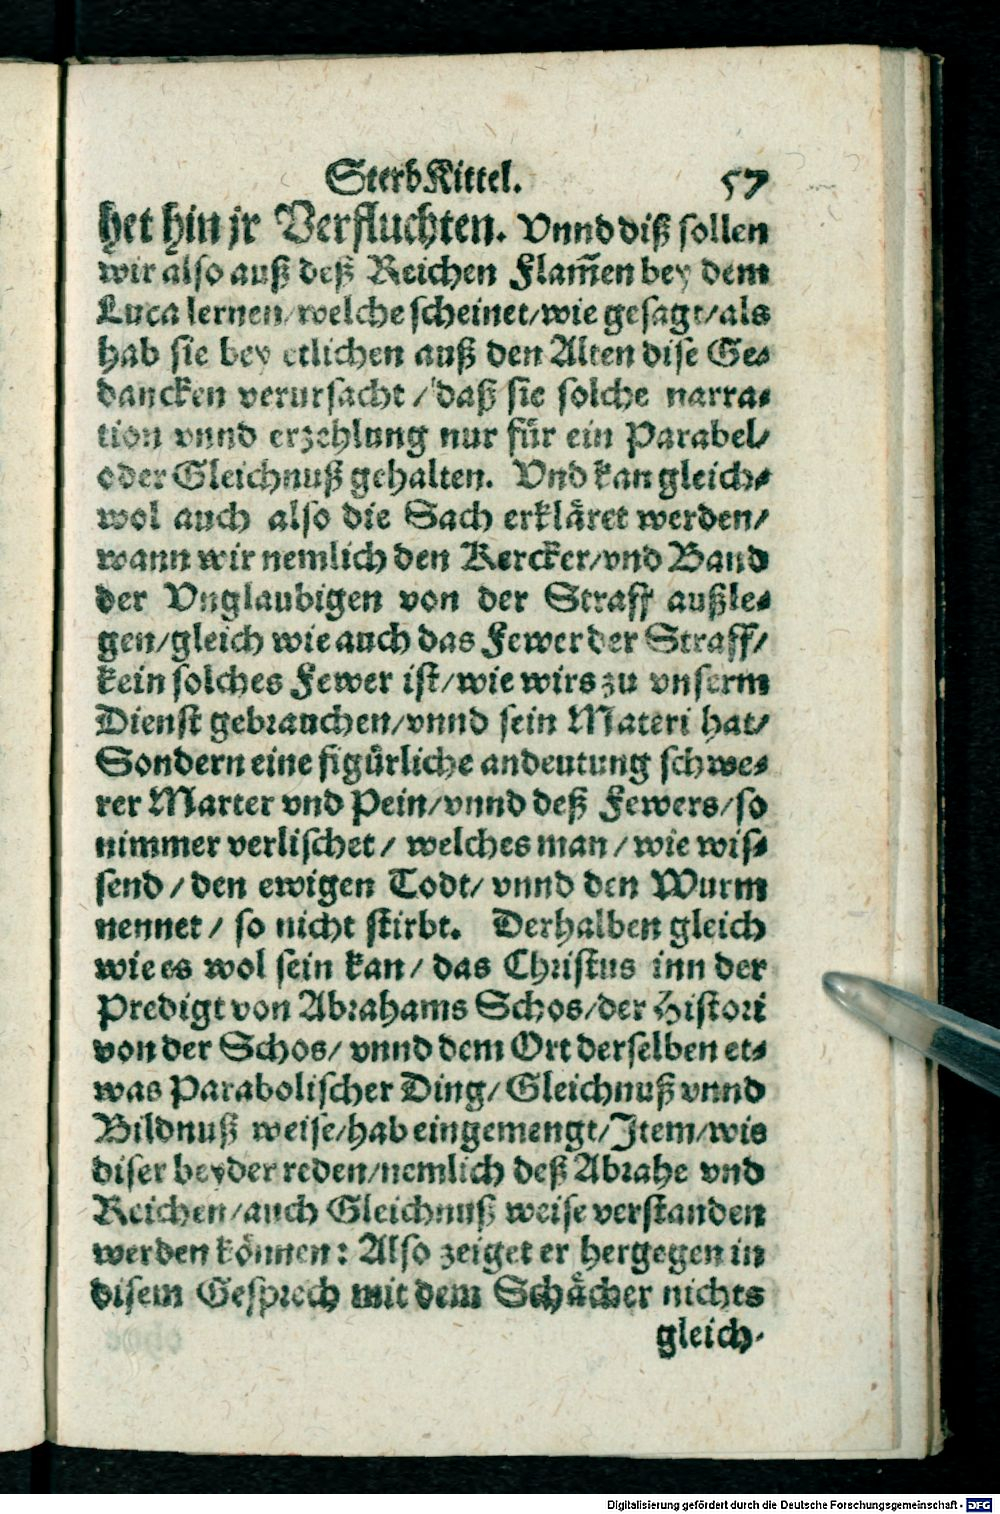 SterbKittel. 57
het hin jr Verfluchten. Vnnd diß sollen
wir also auß deß Reichen Flam̃en bey dem
Luca lernen/welche scheinet/wie gesagt/als
hab sie bey etlichen auß den Alten dise Ge-
dancken verursacht/daß sie solche narra-
tion vnnd erzehlung nur für ein Parabel/
oder Gleichnuß gehalten. Vnd kan gleich-
wol auch also die Sach erkläret werden/
wann wir nemlich den Kercker/vnd Band
der Vnglaubigen von der Straff außle-
gen/gleich wie auch das Fewer der Straff/
kein solches Fewer ist/wie wirs zu vnserm
Dienst gebrauchen/vnnd sein Materi hat/
Sondern eine figürliche andeutung schwe-
rer Marter vnd Pein/vnnd deß Fewers/so
nimmer verlischet/ welches man/wie wis-
send/den ewigen Todt/ vnnd den Wurm
nennet/ so nicht stirbt. Derhalben gleich
wie es wol sein kan/ das Christus inn der
Predigt von Abrahams Schos/der Histori
von der Schos/ vnnd dem Ort derselben et-
was Parabolischer Ding/Gleichnuß vnnd
Bildnuß weise/hab eingemengt/Item/wie
diser beyder reden/nemlich deß Abrahe vnd
Reichen/auch Gleichnuß weise verstanden
werden können: Also zeiget er hergegen in
disem Gesprech mit dem Schächer nichts
gleich-
Digitalisierung gefördert durch die Deutsche Forschungsgemeinschaft - DFG